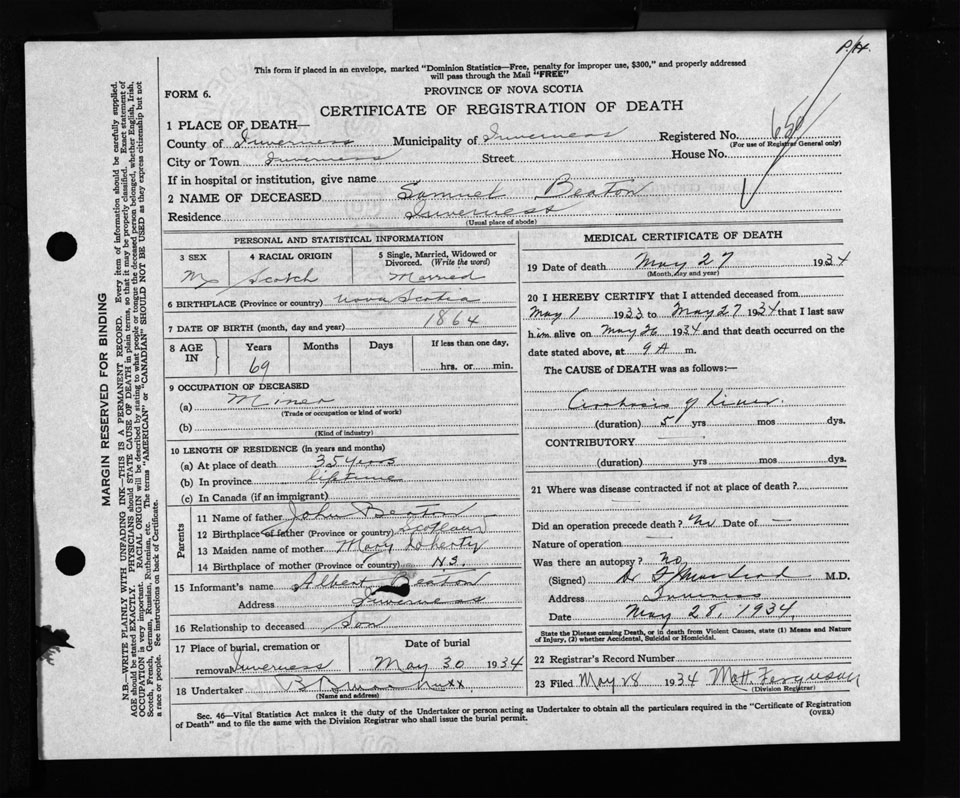 P.H.
This form if placed in an envelope, marked "Dominion Statistics—Free, penalty for improper use, $300," and properly addressed
will pass through the Mail "FREE"
FORM 6.
PROVINCE OF NOVA SCOTIA
CERTIFICATE OF REGISTRATION OF DEATH
1 PLACE OF DEATH—
County of Inverness Municipality of Inverness Registered No.
(For use of Registrar General only)
City or Town Inverness Street House No.
If in hospital or institution, give name
2 NAME OF DECEASED Samuel Beaton
Residence Inverness
(Usual place of abode)
MARGIN RESERVED FOR BINDING
N.B.—WRITE PLAINLY WITH UNFADING INK—THIS IS A PERMANENT RECORD. Every item of information should be carefully supplied.
AGE should be stated EXACTLY. PHYSICIANS should STATE CAUSE OF DEATH in plain terms, so that it may be properly classified. Exact statement of
OCCUPATION is very important. RACIAL ORIGIN will be described by stating to what people or tongue the deceased person belonged, whether English, Irish,
Scotch, French, German, Russian, Ruthenian, etc. The terms "AMERICAN" or "CANADIAN" SHOULD NOT BE USED as they express citizenship but not
a race or people. See instructions on back of Certificate.
PERSONAL AND STATISTICAL INFORMATION
3 SEX 4 RACIAL ORIGIN 5 Single, Married, Widowed or
Divorced. (Write the word)
M Scotch Married
6 BIRTHPLACE (Province or country) Nova Scotia
7 DATE OF BIRTH (month, day and year) 1864
8 AGE IN Years Months Days If less than one day,
69 hrs. or min.
9 OCCUPATION OF DECEASED
(a) Miner
(Trade or occupation or kind of work)
(b)
(Kind of industry)
10 LENGTH OF RESIDENCE (in years and months)
(a) At place of death 35 years
(b) In province lifetime
(c) In Canada (if an immigrant)
Parents
11 Name of father John Beaton
12 Birthplace of father (Province or country) Scotland
13 Maiden name of mother Mary Doherty
14 Birthplace of mother (Province or country) N.S.
15 Informant's name Albert Beaton
Address Inverness
16 Relationship to deceased Son
17 Place of burial, cremation or Date of burial
removal Inverness May 30 1934
18 Undertaker
(Name and address)
MEDICAL CERTIFICATE OF DEATH
19 Date of death May 27 1934
(Month, day and year)
20 I HEREBY CERTIFY that I attended deceased from
May 1 1933 to May 27 1934 that I last saw
him alive on May 26 1934 and that death occurred on
the date stated above, at 9 A m.
The CAUSE of DEATH was as follows:—
Cirrhosis of Liver.
(duration) 5 yrs mos dys.
CONTRIBUTORY
(duration) yrs mos dys.
21 Where was disease contracted if not at place of death?
Did an operation precede death? No Date of —
Nature of operation —
Was there an autopsy? No
(Signed) Dr M.D.
Address Inverness
Date May 28, 1934
State the Disease causing Death, or in death from Violent Causes, state (1) Means and Nature
of Injury, (2) whether Accidental, Suicidal or Homicidal.
22 Registrar's Record Number
23 Filed May 28 1934 Matt. Ferguson
(Division Registrar)
Sec. 46—Vital Statistics Act makes it the duty of the Undertaker or person acting as Undertaker to obtain all the particulars required in the "Certificate of Registration
of Death" and to file the same with the Division Registrar who shall issue the burial permit.
(OVER)